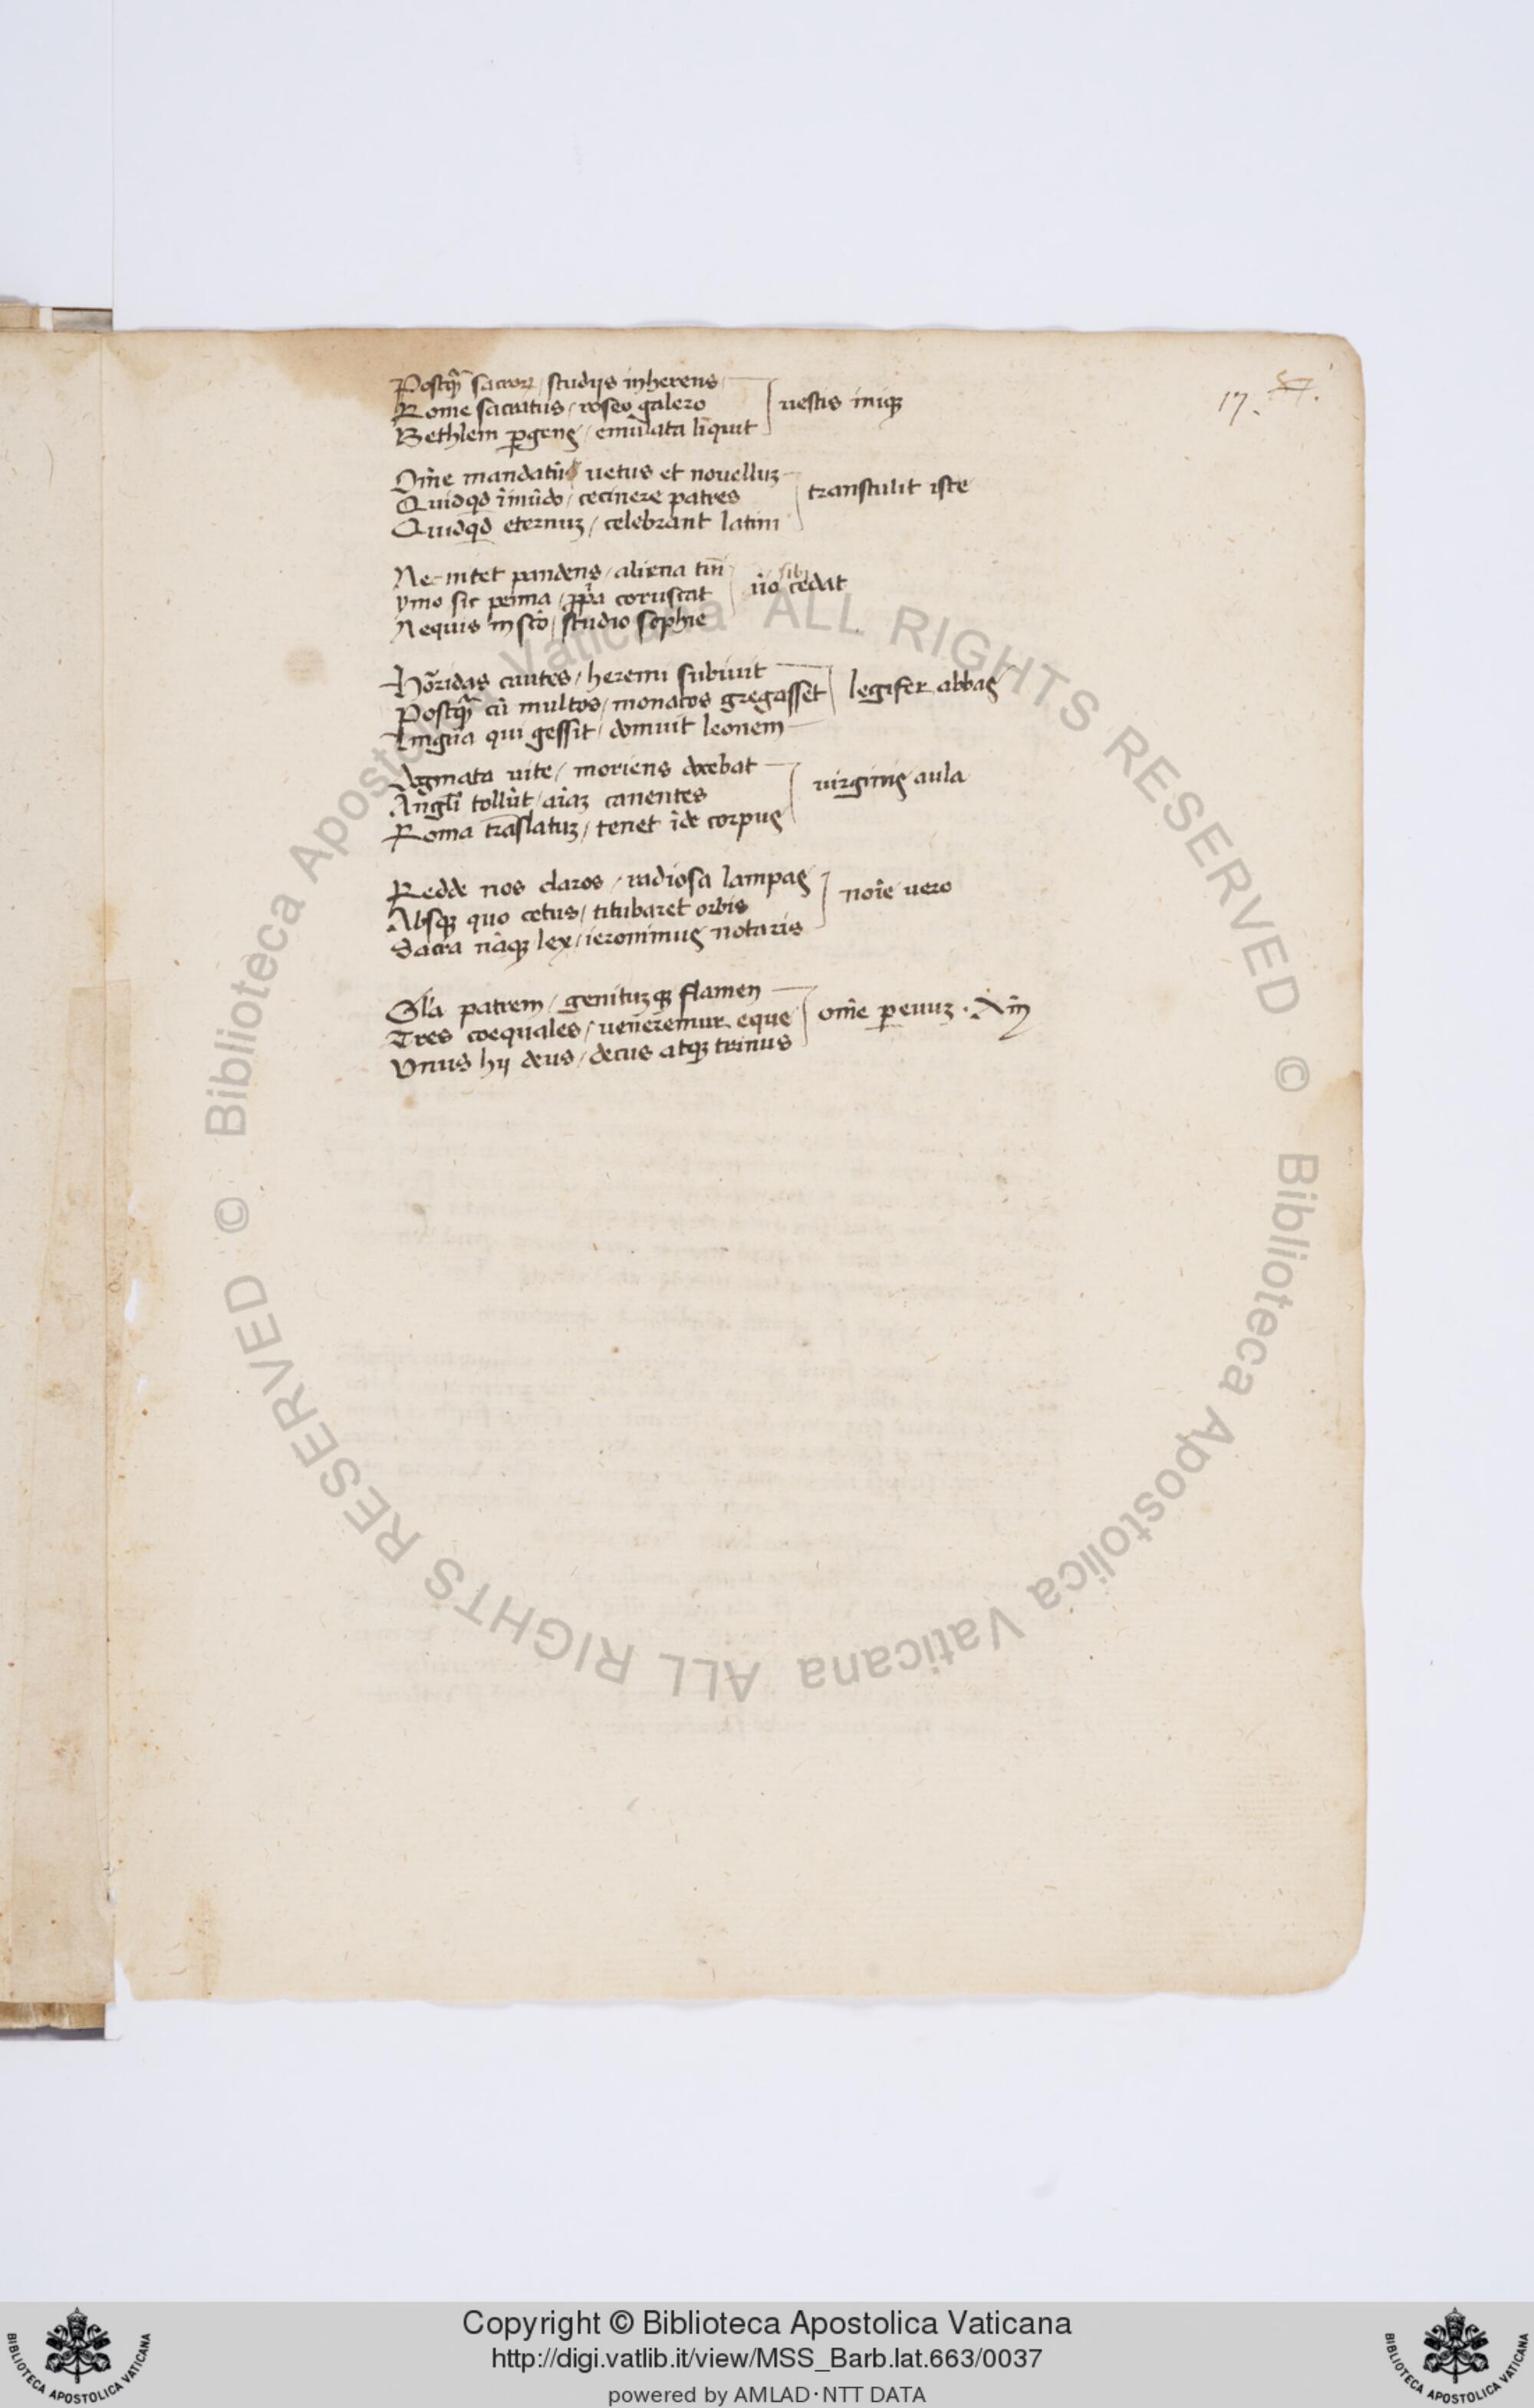 17. 37.
Postq̃ȝ sacroꝝ / studijs inherens
Rome sacratus / roseo galero
Bethlem ꝑgens / emulata liquit
uestis iniqꝫ
Om̄e mandatū / uetus et nouelluꝫ
Quidqd̄ ī mūdo / cecinere patres
Quidqd̄ eternuꝫ / celebrant latim
transtulit iste
Nec nitet pandens / aliena tm̄
ymo sic prima / ꝓp̃a coruscat
Nequis in scō / studio sophie
ūo sib cedat
Hor̃idas cautes / heremi subiuit
Postq̃ȝ cū multos / monacos gregasset
Lingua qui gessit / domuit leonem
legifer abbas
Dogmata uite / moriens docebat
Angli̅ tollūt / aīaꝫ canentes
Roma trāslatuꝫ / tenet īde corpus
virginis aula
Redde nos claros / radiosa lampas
Absqꝫ quo cetus / titubaret orbis
Sacra nāqꝫ lex / ieronimus notaris
noīe uero
Glīa patrem / genituꝫqꝫ flamen
Tres coequales / ueneremur eque
Vnus hij deus / decus atqꝫ trinus
om̄e ꝑ euuꝫ . Am̄
© Biblioteca Apostolica Vaticana ALL RIGHTS RESERVED © Biblioteca Apostolica Vaticana ALL RIGHTS RESERVED
Copyright © Biblioteca Apostolica Vaticana
http://digi.vatlib.it/view/MSS_Barb.lat.663/0037
powered by AMLAD·NTT DATA
BIBLIOTECA APOSTOLICA VATICANA
BIBLIOTECA APOSTOLICA VATICANA